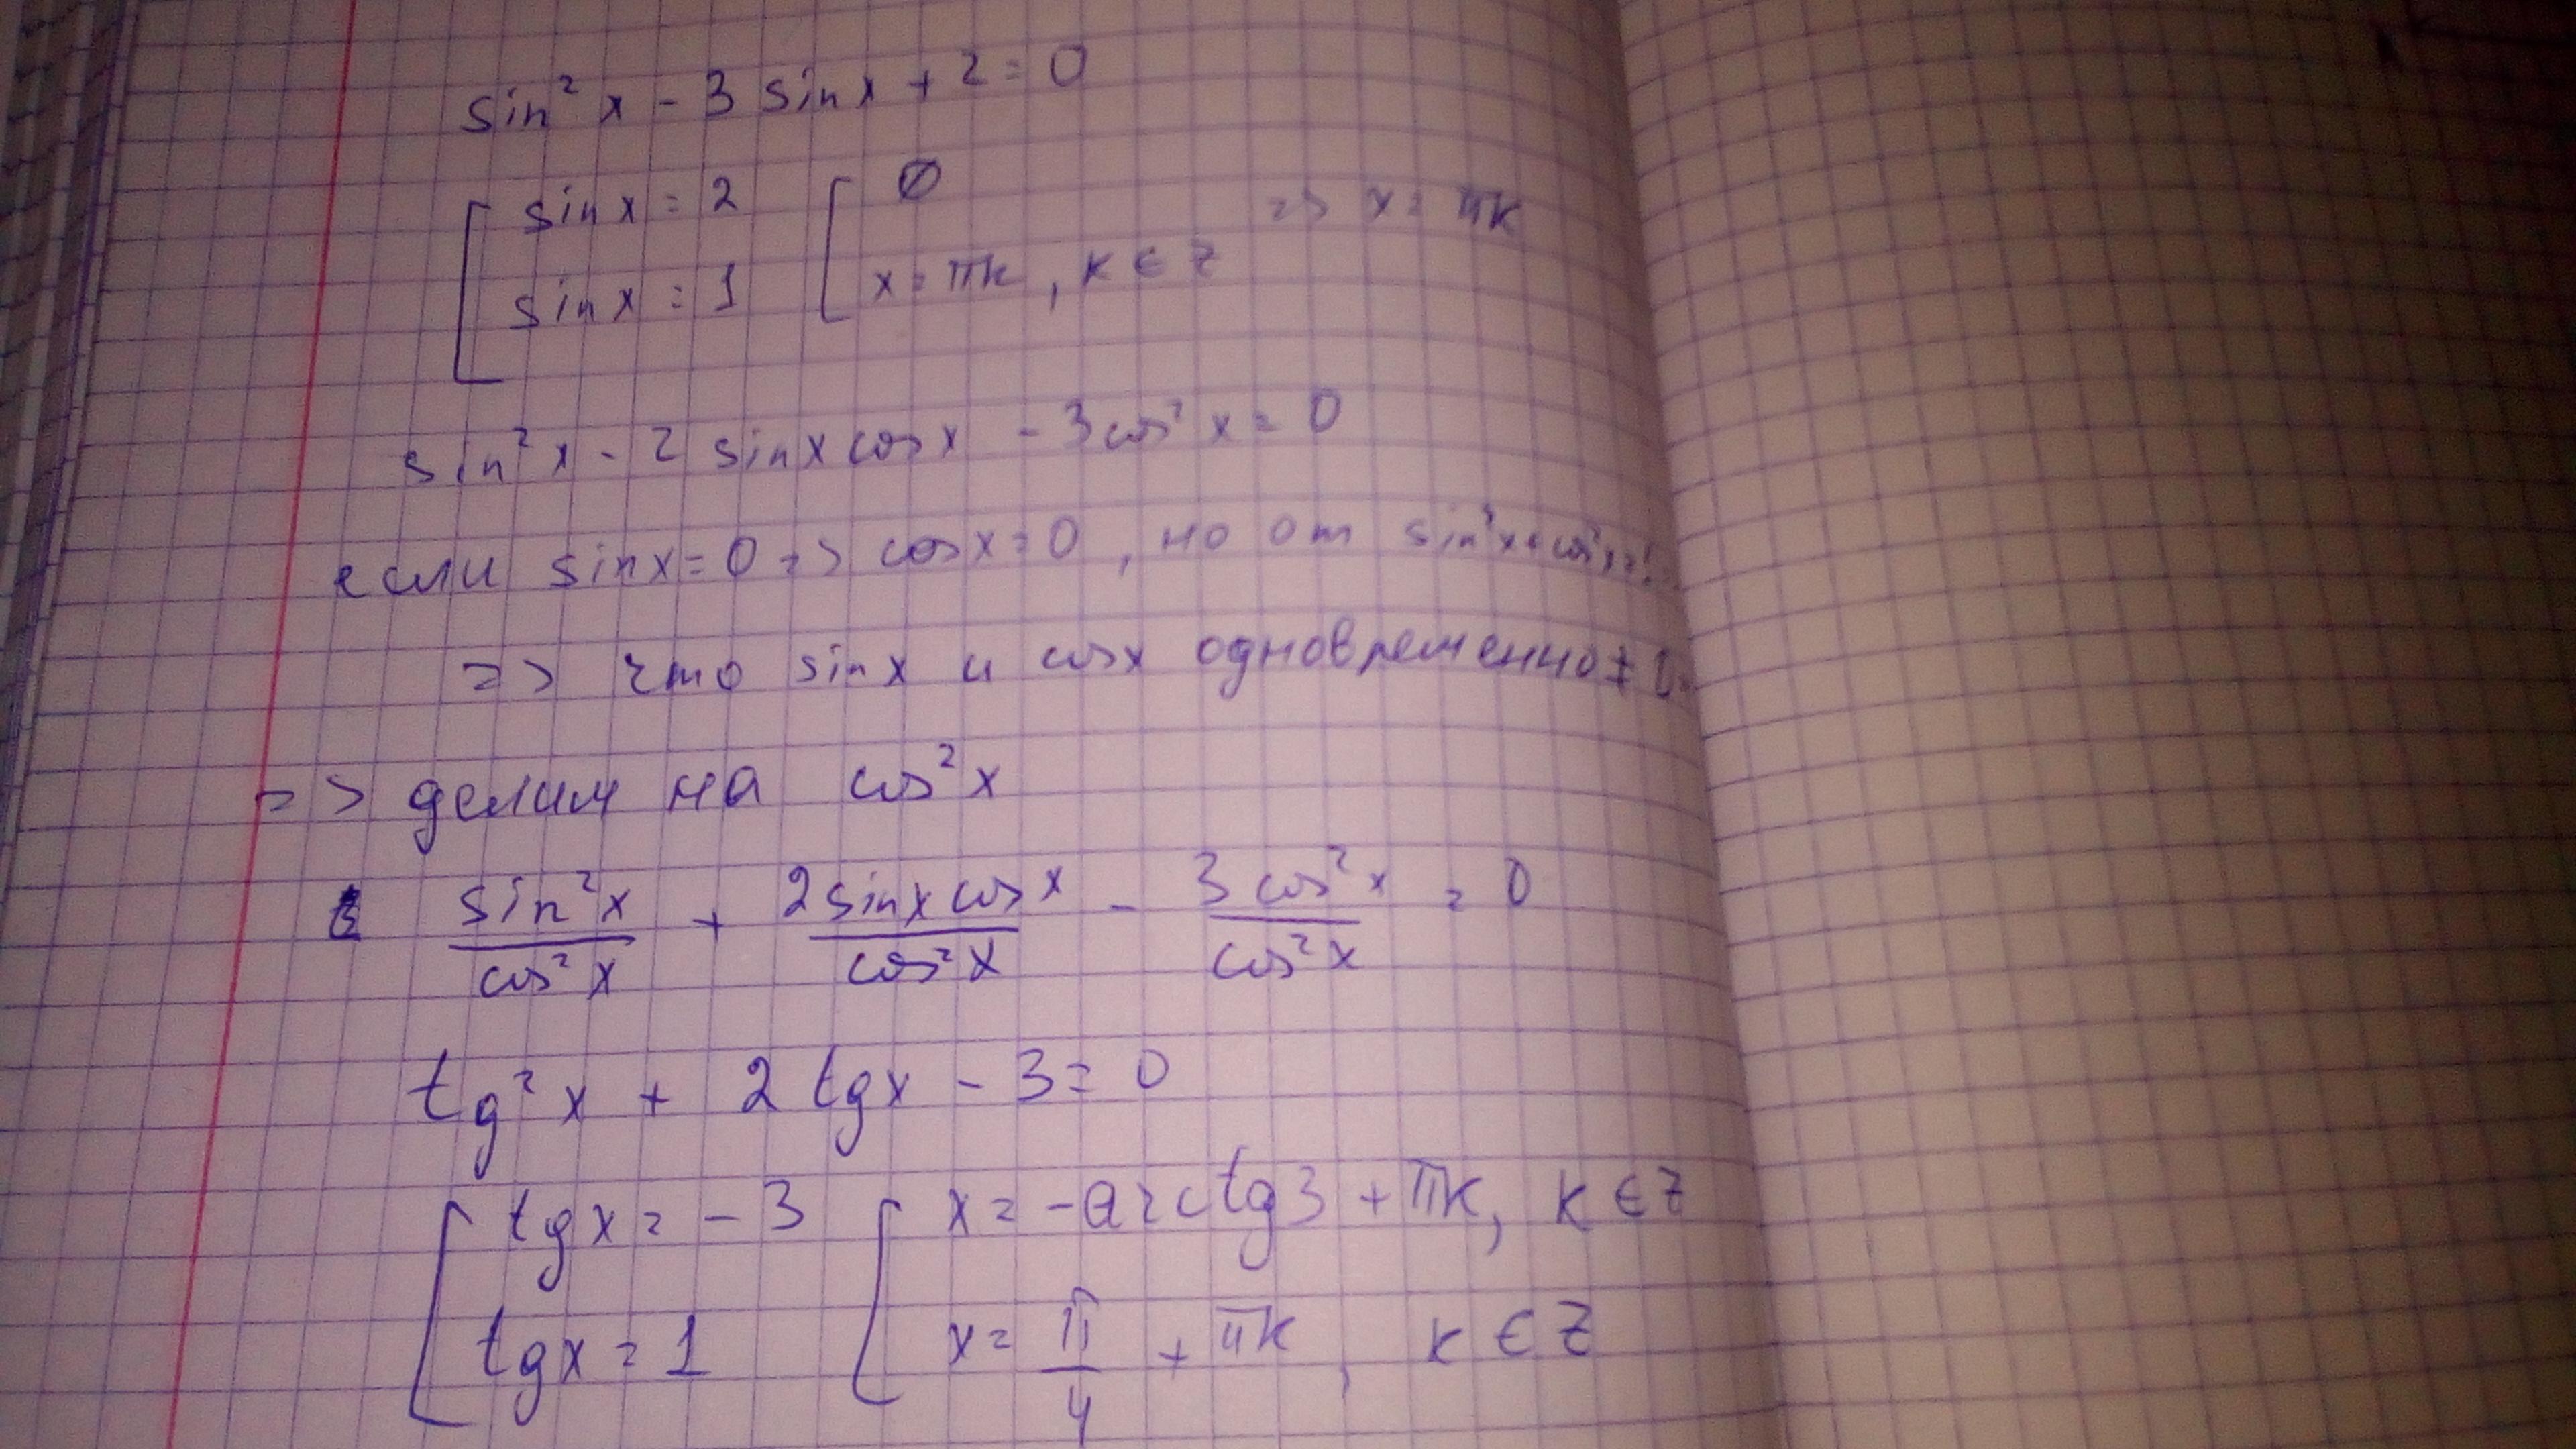 sin² x - 3 sin x + 2 = 0
[ sin x = 2 [ ∅ => x = πk
sin x = 1 x = πk, k ∈ Z
sin² x - 2 sin x cos x - 3 cos² x = 0
если sin x = 0 => cos x = 0, но от sin² x + cos² x = 1
=> что sin x и cos x одновременно ≠ 0
=> делим на cos² x
sin² x / cos² x + 2 sin x cos x / cos² x - 3 cos² x / cos² x = 0
tg² x + 2 tg x - 3 = 0
[ tg x = - 3 [ x = - arctg 3 + πk, k ∈ Z
tg x = 1 x = π/4 + πk, k ∈ Z